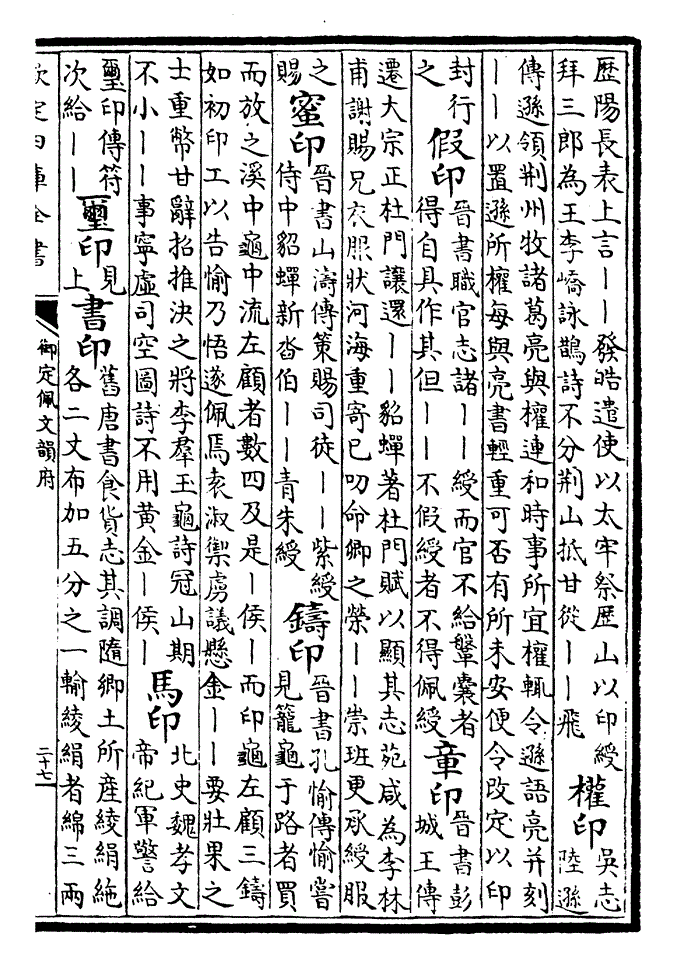 歴陽長表上言丨丨發皓遣使以太牢祭歴山以印綬
拜三郎為王李嶠詠鵲詩不分荆山抵甘從丨丨飛
權印
吳志
陸遜
傳遜領荆州牧諸葛亮與權連和時事所宜權輒令遜語亮并刻
丨丨以置遜所權每與亮書輕重可否有所未安便令改定以印
封行
之
假印
晉書職官志諸丨丨綬而官不給鞶囊者
得自具作其但丨丨不假綬者不得佩綬
章印
晉書彭
城王傳
遷大宗正杜門讓還丨丨貂蟬著杜門賦以顯其志苑咸為李林
甫謝賜兄衣服狀河海重寄已叨命卿之榮丨丨崇班更承綬服
之
賜
蜜印
晉書山濤傳策賜司徒丨丨紫綬
侍中貂蟬新沓伯丨丨青朱綬
鑄印
晉書孔愉傳愉嘗
見籠龜于路者買
而放之溪中龜中流左顧者數四及是丨侯丨而印龜左顧三鑄
如初印工以告愉乃悟遂佩焉袁淑禦虜議懸金丨丨要壯果之
士重幣甘辭招推決之將李羣玉龜詩冠山期
不小丨丨事寧虛司空圖詩不用黄金丨侯丨
馬印
北史魏孝文
帝紀軍警給
璽印傳符
次給丨丨
璽印
見
上
書印
舊唐書食貨志其調隨鄉土所產綾絹絁
各二丈布加五分之一輸綾絹者綿三兩
欽定四庫全書
御定佩文韻府
二十七